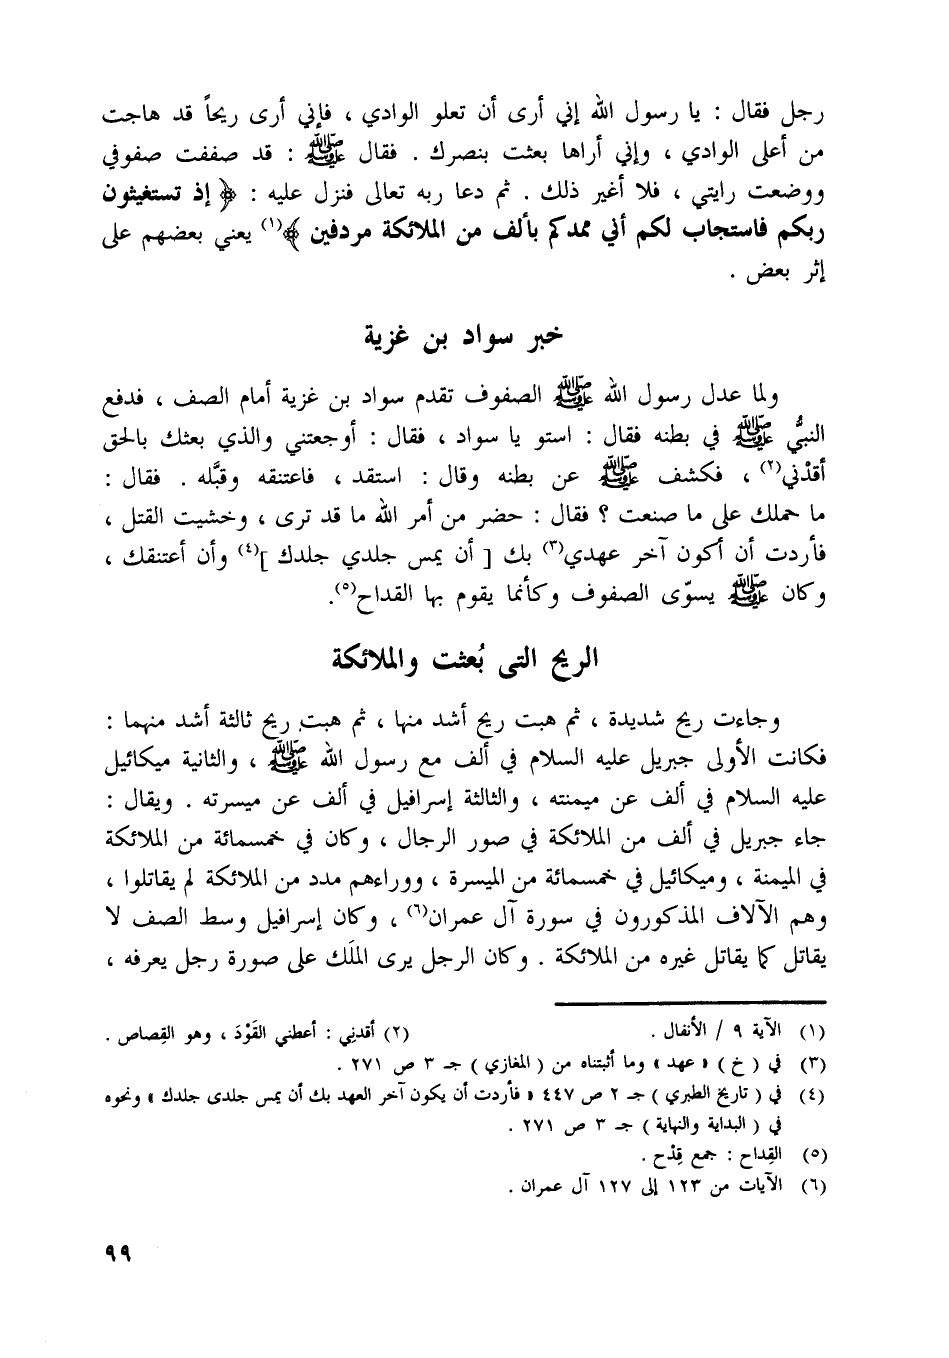 رجل فقال : يا رسول الله إني أرى أن تعلو الوادي ، فإني أرى ريحاً قد هاجت
من أعلى الوادي ، وإني أراها بعثت بنصرك . فقال ﷺ : قد صففت صفوفي
ووضعت رايتي ، فلا أغير ذلك . ثم دعا ربه تعالى فنزل عليه : ﴿ إذ تستغيثون
ربكم فاستجاب لكم أني ممدكم بألف من الملائكة مردفين ﴾(١) يعني بعضهم على
إثر بعض .
خبر سواد بن غزية
ولما عدل رسول الله ﷺ الصفوف تقدم سواد بن غزية أمام الصف ، فدفع
النبيُّ ﷺ في بطنه فقال : استو يا سواد ، فقال : أوجعتني والذي بعثك بالحق
أقدْني(٢) ، فكشف ﷺ عن بطنه وقال : استقد ، فاعتنقه وقبَّله . فقال :
ما حملك على ما صنعت ؟ فقال : حضر من أمر الله ما قد ترى ، وخشيت القتل ،
فأردت أن أكون آخر عهدي(٣) بك [ أن يمس جلدي جلدك ](٤) وأن أعتنقك ،
وكان ﷺ يسوّى الصفوف وكأنما يقوم بها القداح(٥).
الريح التى بُعثت والملائكة
وجاءت ريح شديدة ، ثم هبت ريح أشد منها ، ثم هبت ريح ثالثة أشد منهما :
فكانت الأولى جبريل عليه السلام في ألف مع رسول الله ﷺ ، والثانية ميكائيل
عليه السلام في ألف عن ميمنته ، والثالثة إسرافيل في ألف عن ميسرته . ويقال :
جاء جبريل في ألف من الملائكة في صور الرجال ، وكان في خمسمائة من الملائكة
في الميمنة ، وميكائيل في خمسمائة من الميسرة ، ووراءهم مدد من الملائكة لم يقاتلوا ،
وهم الآلاف المذكورون في سورة آل عمران(٦) ، وكان إسرافيل وسط الصف لا
يقاتل كما يقاتل غيره من الملائكة . وكان الرجل يرى الملَك على صورة رجل يعرفه ،
(١) الآية ٩ / الأنفال . (٢) أقدنِي : أعطني القَوْدَ ، وهو القِصاص .
(٣) في ( خ ) « عهد » وما أثبتناه من ( المغازي ) جـ ٣ ص ٢٧١ .
(٤) في ( تاريخ الطبري ) جـ ٢ ص ٤٤٧ « فأردت أن يكون آخر العهد بك أن يمس جلدى جلدك » ونحوه
في ( البداية والنهاية ) جـ ٣ ص ٢٧١ .
(٥) القِداح : جمع قِدْح .
(٦) الآيات من ١٢٣ إلى ١٢٧ آل عمران .
٩٩